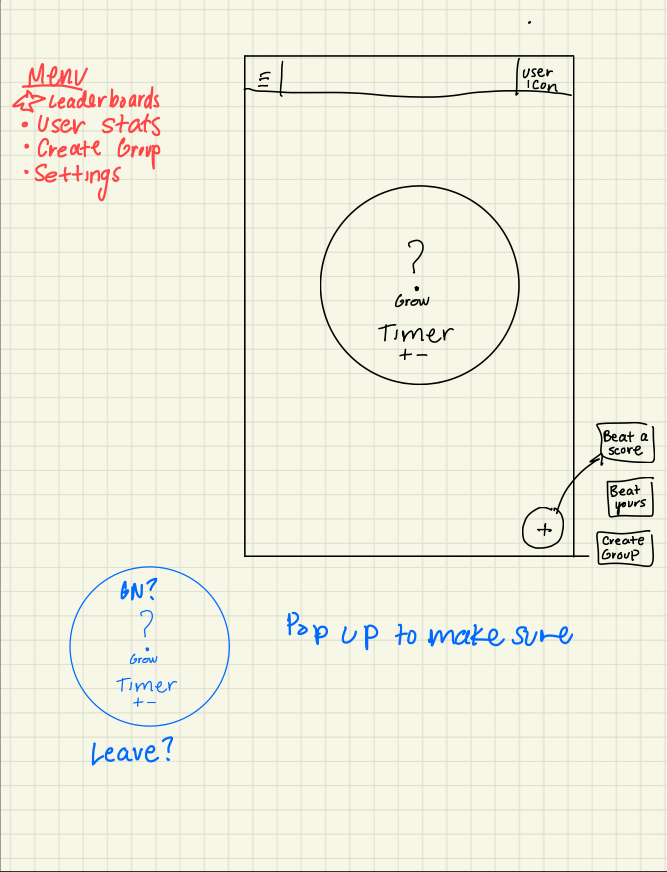 Menu
Leaderboards
• User stats
• Create Group
• Settings
User
icon
?
Grow
Timer
+ -
Beat a
score
Beat
yours
Create
Group
+
GN?
?
Grow
Timer
+ -
Leave?
Pop up to make sure